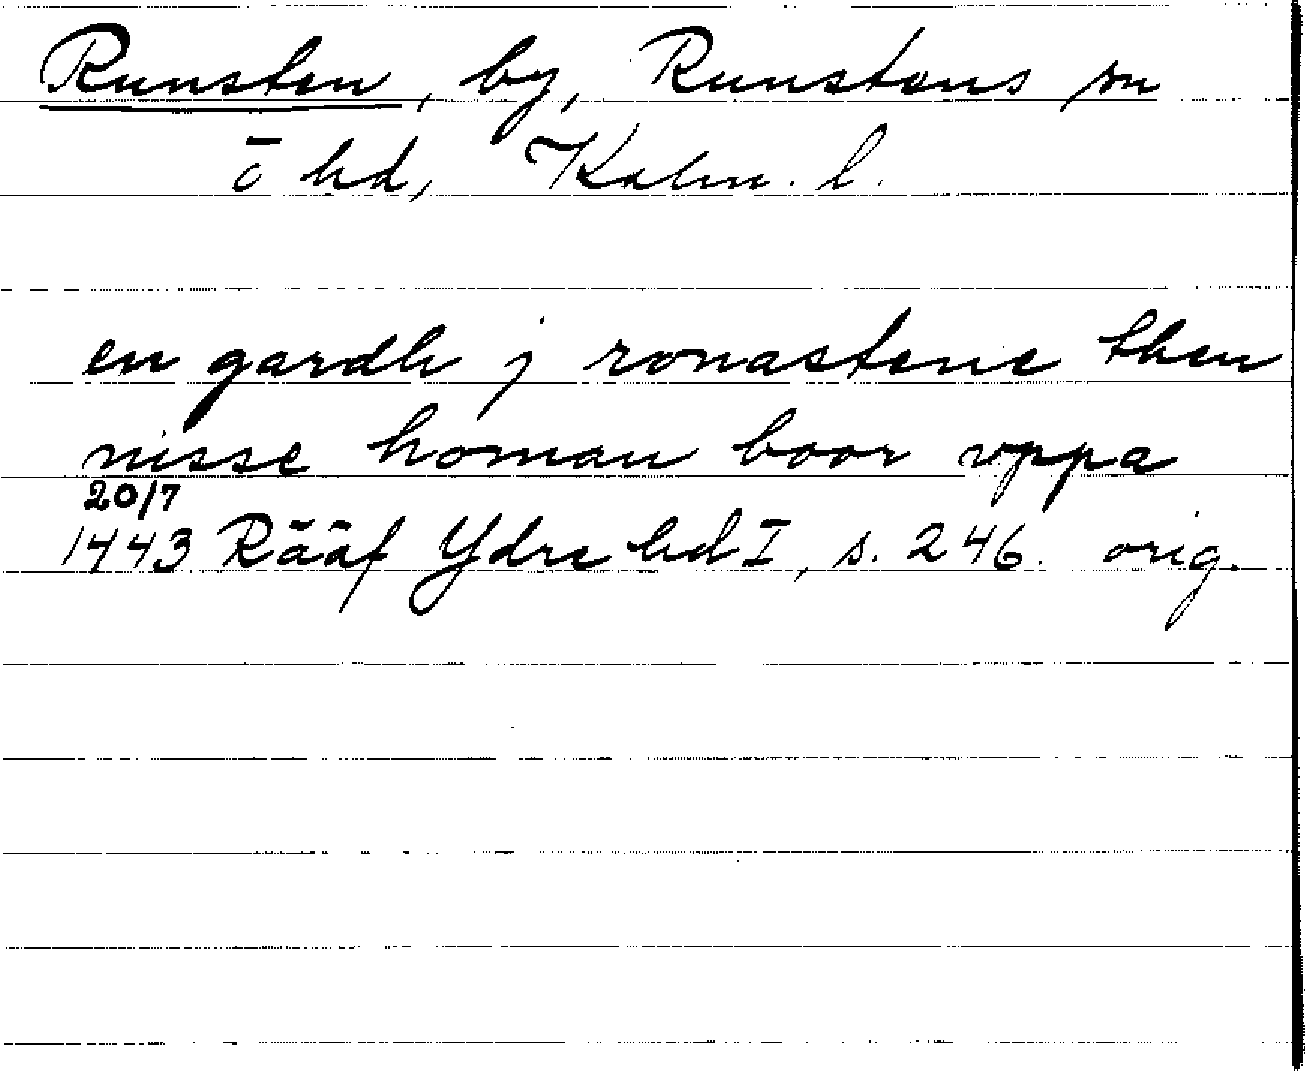 Runsten, by, Runstens sn
ö hd, Kalm. l.
en gardh j ronastene then
nisse homan boor vppa
20/7
1443 Rääf Ydre hd I, s. 246. orig.